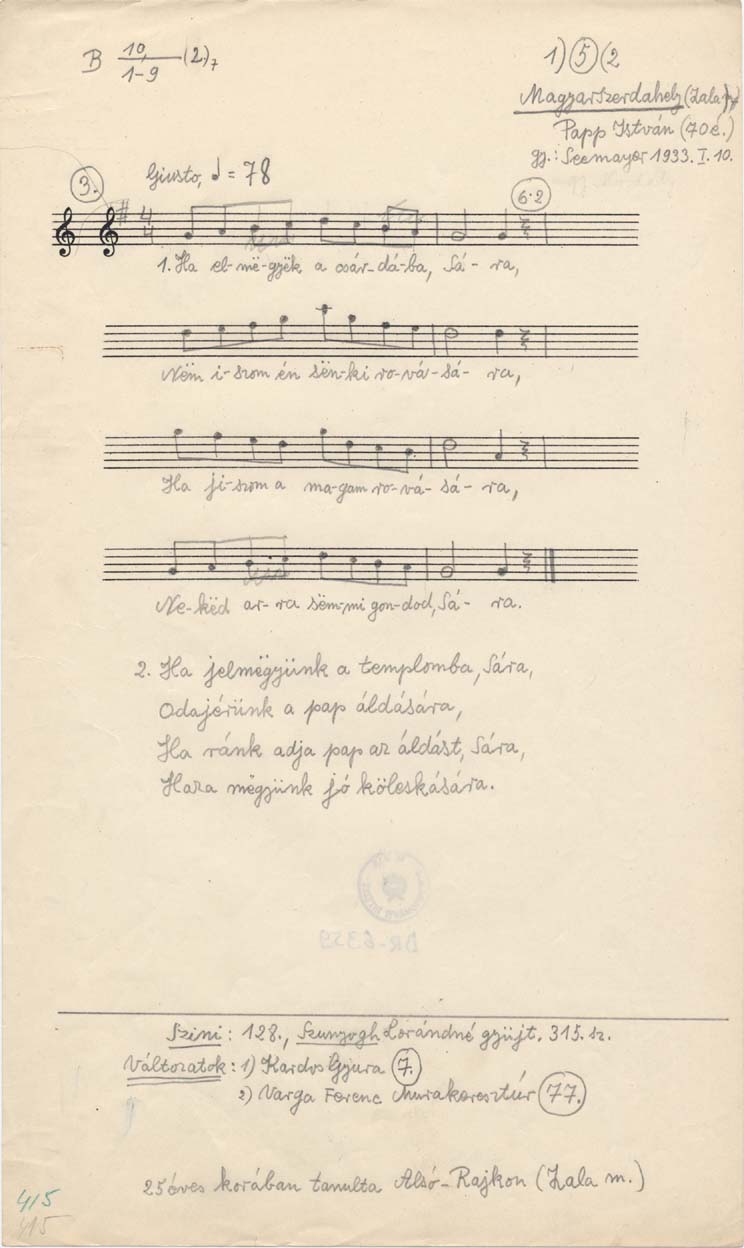 B 10,/1-9 (2)7
1) 5 (2
Magyarszerdahely (Zala)
Papp István (70 é.)
gy.: Seemayer 1933. I. 10.
3. Giusto, ♩ = 78
6·2
4/4
1. Ha el-më-gyëk a csár-dá-ba, Sá-ra,
Nëm i-szom én sën-ki ro-vá-sá-ra,
Ha ji-szom a ma-gam ro-vá-sá-ra,
Ne-këd ar-ra sëm-mi gon-dod, Sá-ra.
2. Ha jelmëgyünk a templomba, Sára,
Odajérünk a pap áldására,
Ha ránk adja pap az áldást, Sára,
Haza mëgyünk jó köleskására.
BR-6359
Szini: 128., Szunyogh Lorándné gyüjt. 315. sz.
Változatok: 1) Kardos Gyura 7.
2) Varga Ferenc Murakeresztúr 77.
25 éves korában tanulta Alsó-Rajkon (Zala m.)
415
415